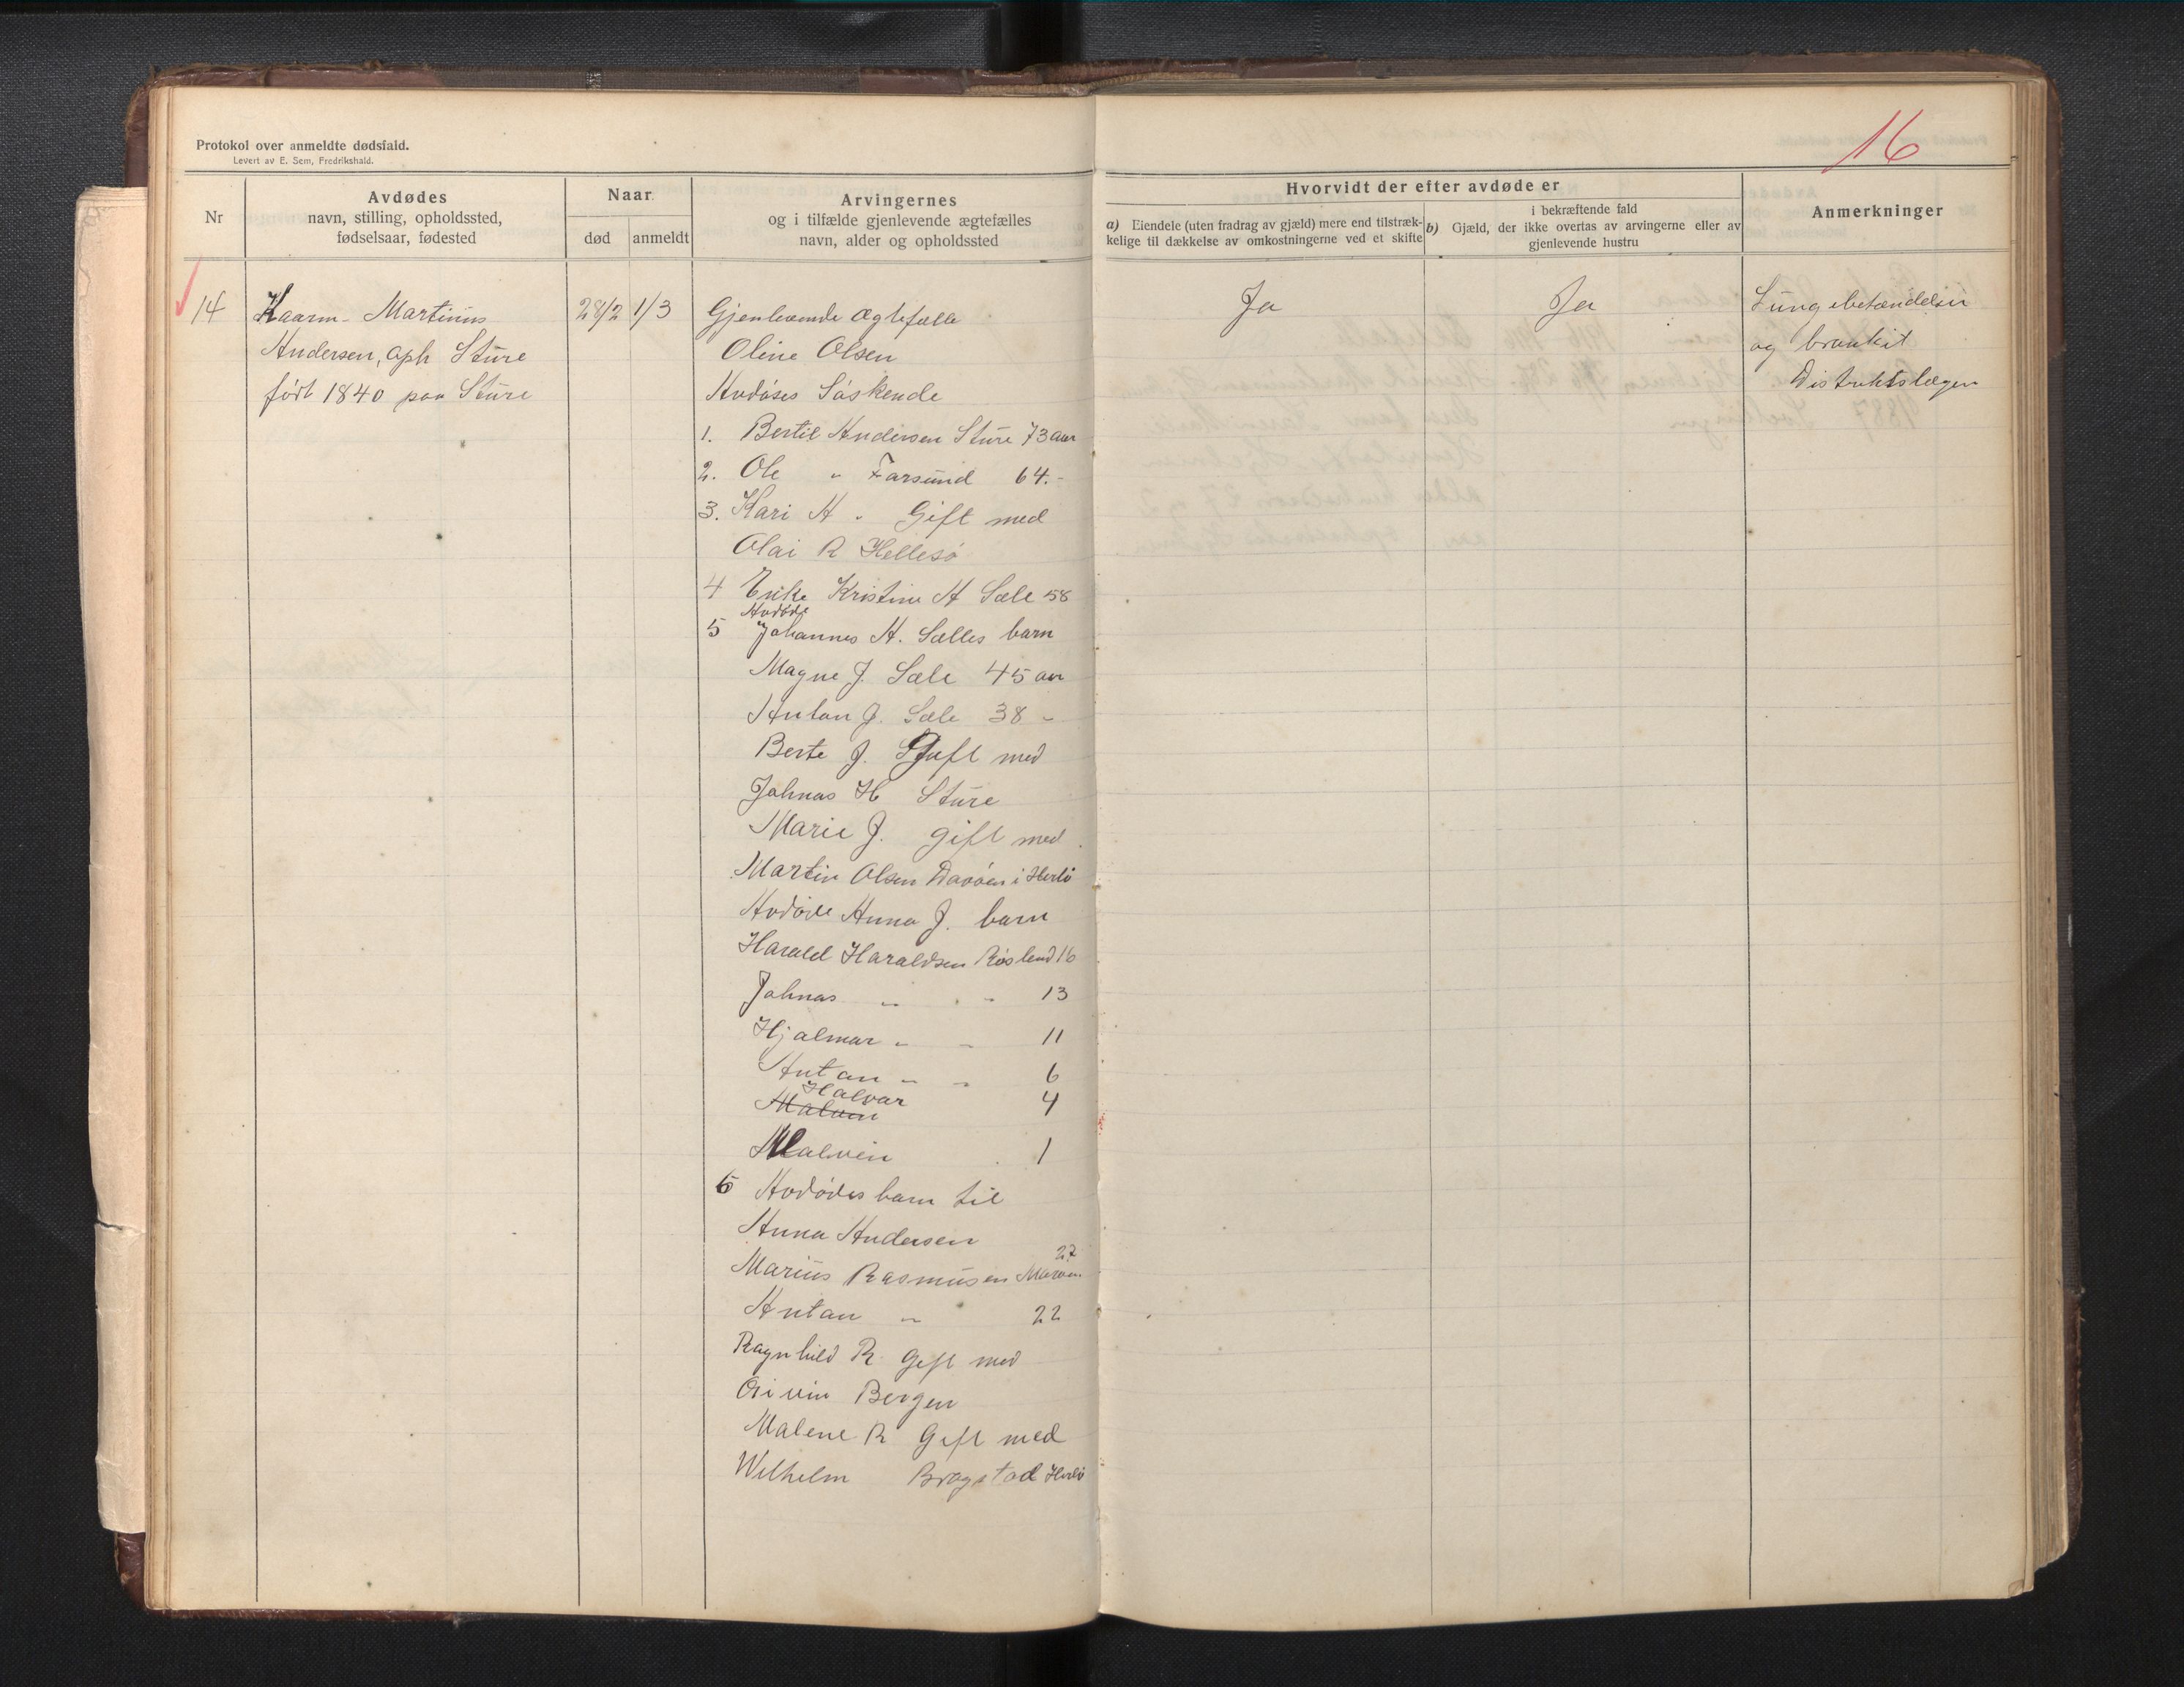 Protokol over anmeldte dødsfald.
Levert av E. Sem, Fredrikshald.
16
Nr
Avdødes
navn, stilling, opholdssted,
fødselsaar, fødested
Naar
død
anmeldt
Arvingernes
og i tilfælde gjenlevende ægtefælles
navn, alder og opholdssted
Hvorvidt der efter avdøde er
a) Eiendele (uten fradrag av gjæld) mere end tilstræk-
kelige til dækkelse av omkostningerne ved et skifte
i bekræftende fald
b) Gjæld, der ikke overtas av arvingerne eller av
gjenlevende hustru
Anmerkninger
14
Kaarm. Martinus
Andersen, oph Sture
født 1840 paa Sture
28/2 1/3
Gjenlevende Ægtefælle
Oline Olsen
Avdøses Søskende
1. Bertil Andersen Sture 73 aar
2. Ole " Farsund 64.-
3. Kari A " Gift med
Olai R Hellesø
4 Enke Kristine A Sæle 58
Avdøde
5 Johannes A. Sælles barn
Magne J. Sæle 45 aar
Anton J. Sæle 38 "
Berte J. Gift med
Johnas H Sture
Marie J. gift med
Martin Olsen Davøen i Herlø
Avdøde Anna J. barn
Harald Haraldsen Røsland 16
Johnas " " 13
Hjalmar " " 11
Antan " " 6
Halvar
Malvin 4
Malvin 1
6 Avdødes barn til
Anna Andersen
27
Marius Rasmusen Marøen
Antan " 22
Ragnhild R. Gift med
Bergen
Malene R Gift med
Wilhelm Brogstad Herlø
Ja
Ja
Lungebetændelse
og bronkit
Distriktslægen